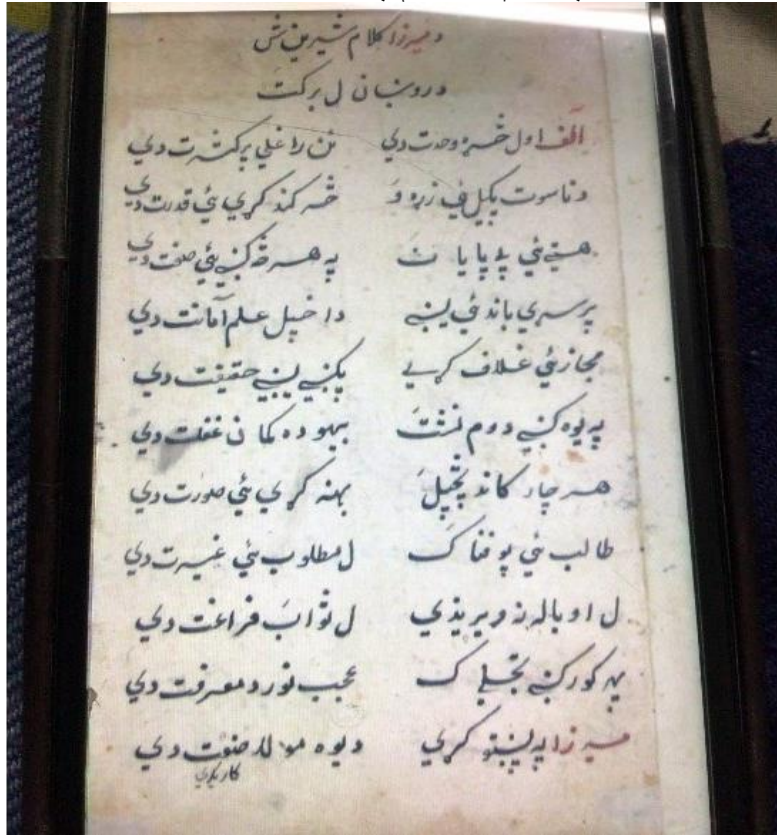 د میرزا کلام شیرین ش
د روښان ل برکت
الف اول څرخ وحدت دي نن راغلي پر کثرت دي
د ناسوت پکیل ئي زړه و څه کند کړي ئي قدرت دي
هستي ئي بې پایا ن په هر څه کښې ئي صنعت دي
پر سړي باند ئي ښي دا خپل علم امانت دي
مجاز ئي غلاف کړي پکښې ښي حقیقت دي
په یوه کښې دوم نشت بیهوده کمان غفلت دي
هر چار کاند پخپل بهنه کړي ئي صورت دي
طالب ئي یو فنا ک ل مطلوب ئي غیرت دي
ل اوباله نه ویریذي ل ثواب فراغت دي
په کور کښې تجلي ک عجب نور د معرفت دي
میرزا په پښتو کړي دیوه مولد صنوت دي
کاریکري